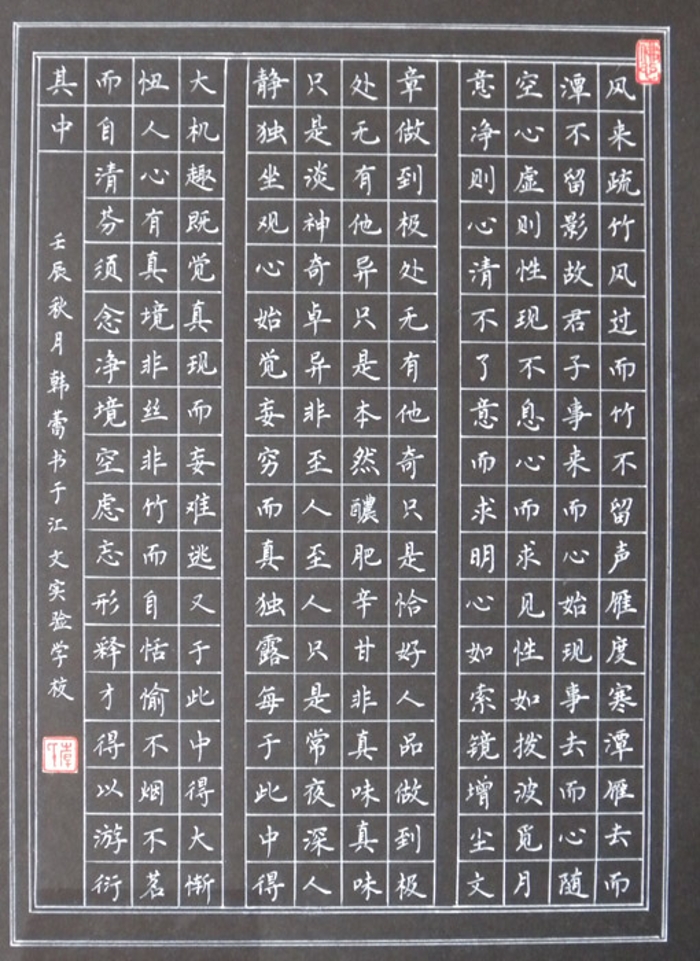 风来疏竹风过而竹不留声雁度寒潭雁去而
潭不留影故君子事来而心始现事去而心随
空心虚则性现不息心而求见性如拨波觅月
意净则心清不了意而求明心如索镜增尘文
章做到极处无有他奇只是恰好人品做到极
处无有他异只是本然醲肥辛甘非真味真味
只是淡神奇卓异非至人至人只是常夜深人
静独坐观心始觉妄穷而真独露每于此中得
大机趣既觉真现而妄难逃又于此中得大惭
忸人心有真境非丝非竹而自恬愉不烟不茗
而自清芬须念净境空虑忘形释才得以游衍
其中
壬辰秋月韩蕾书于江文实验学校